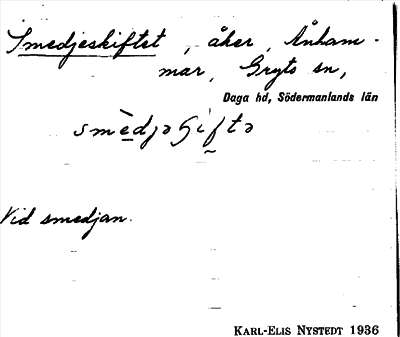 Smedjeskiftet, åker, Ånham-
mar, Gryts sn,
Daga hd, Södermanlands län
Vid smedjan.
KARL-ELIS NYSTEDT 1936